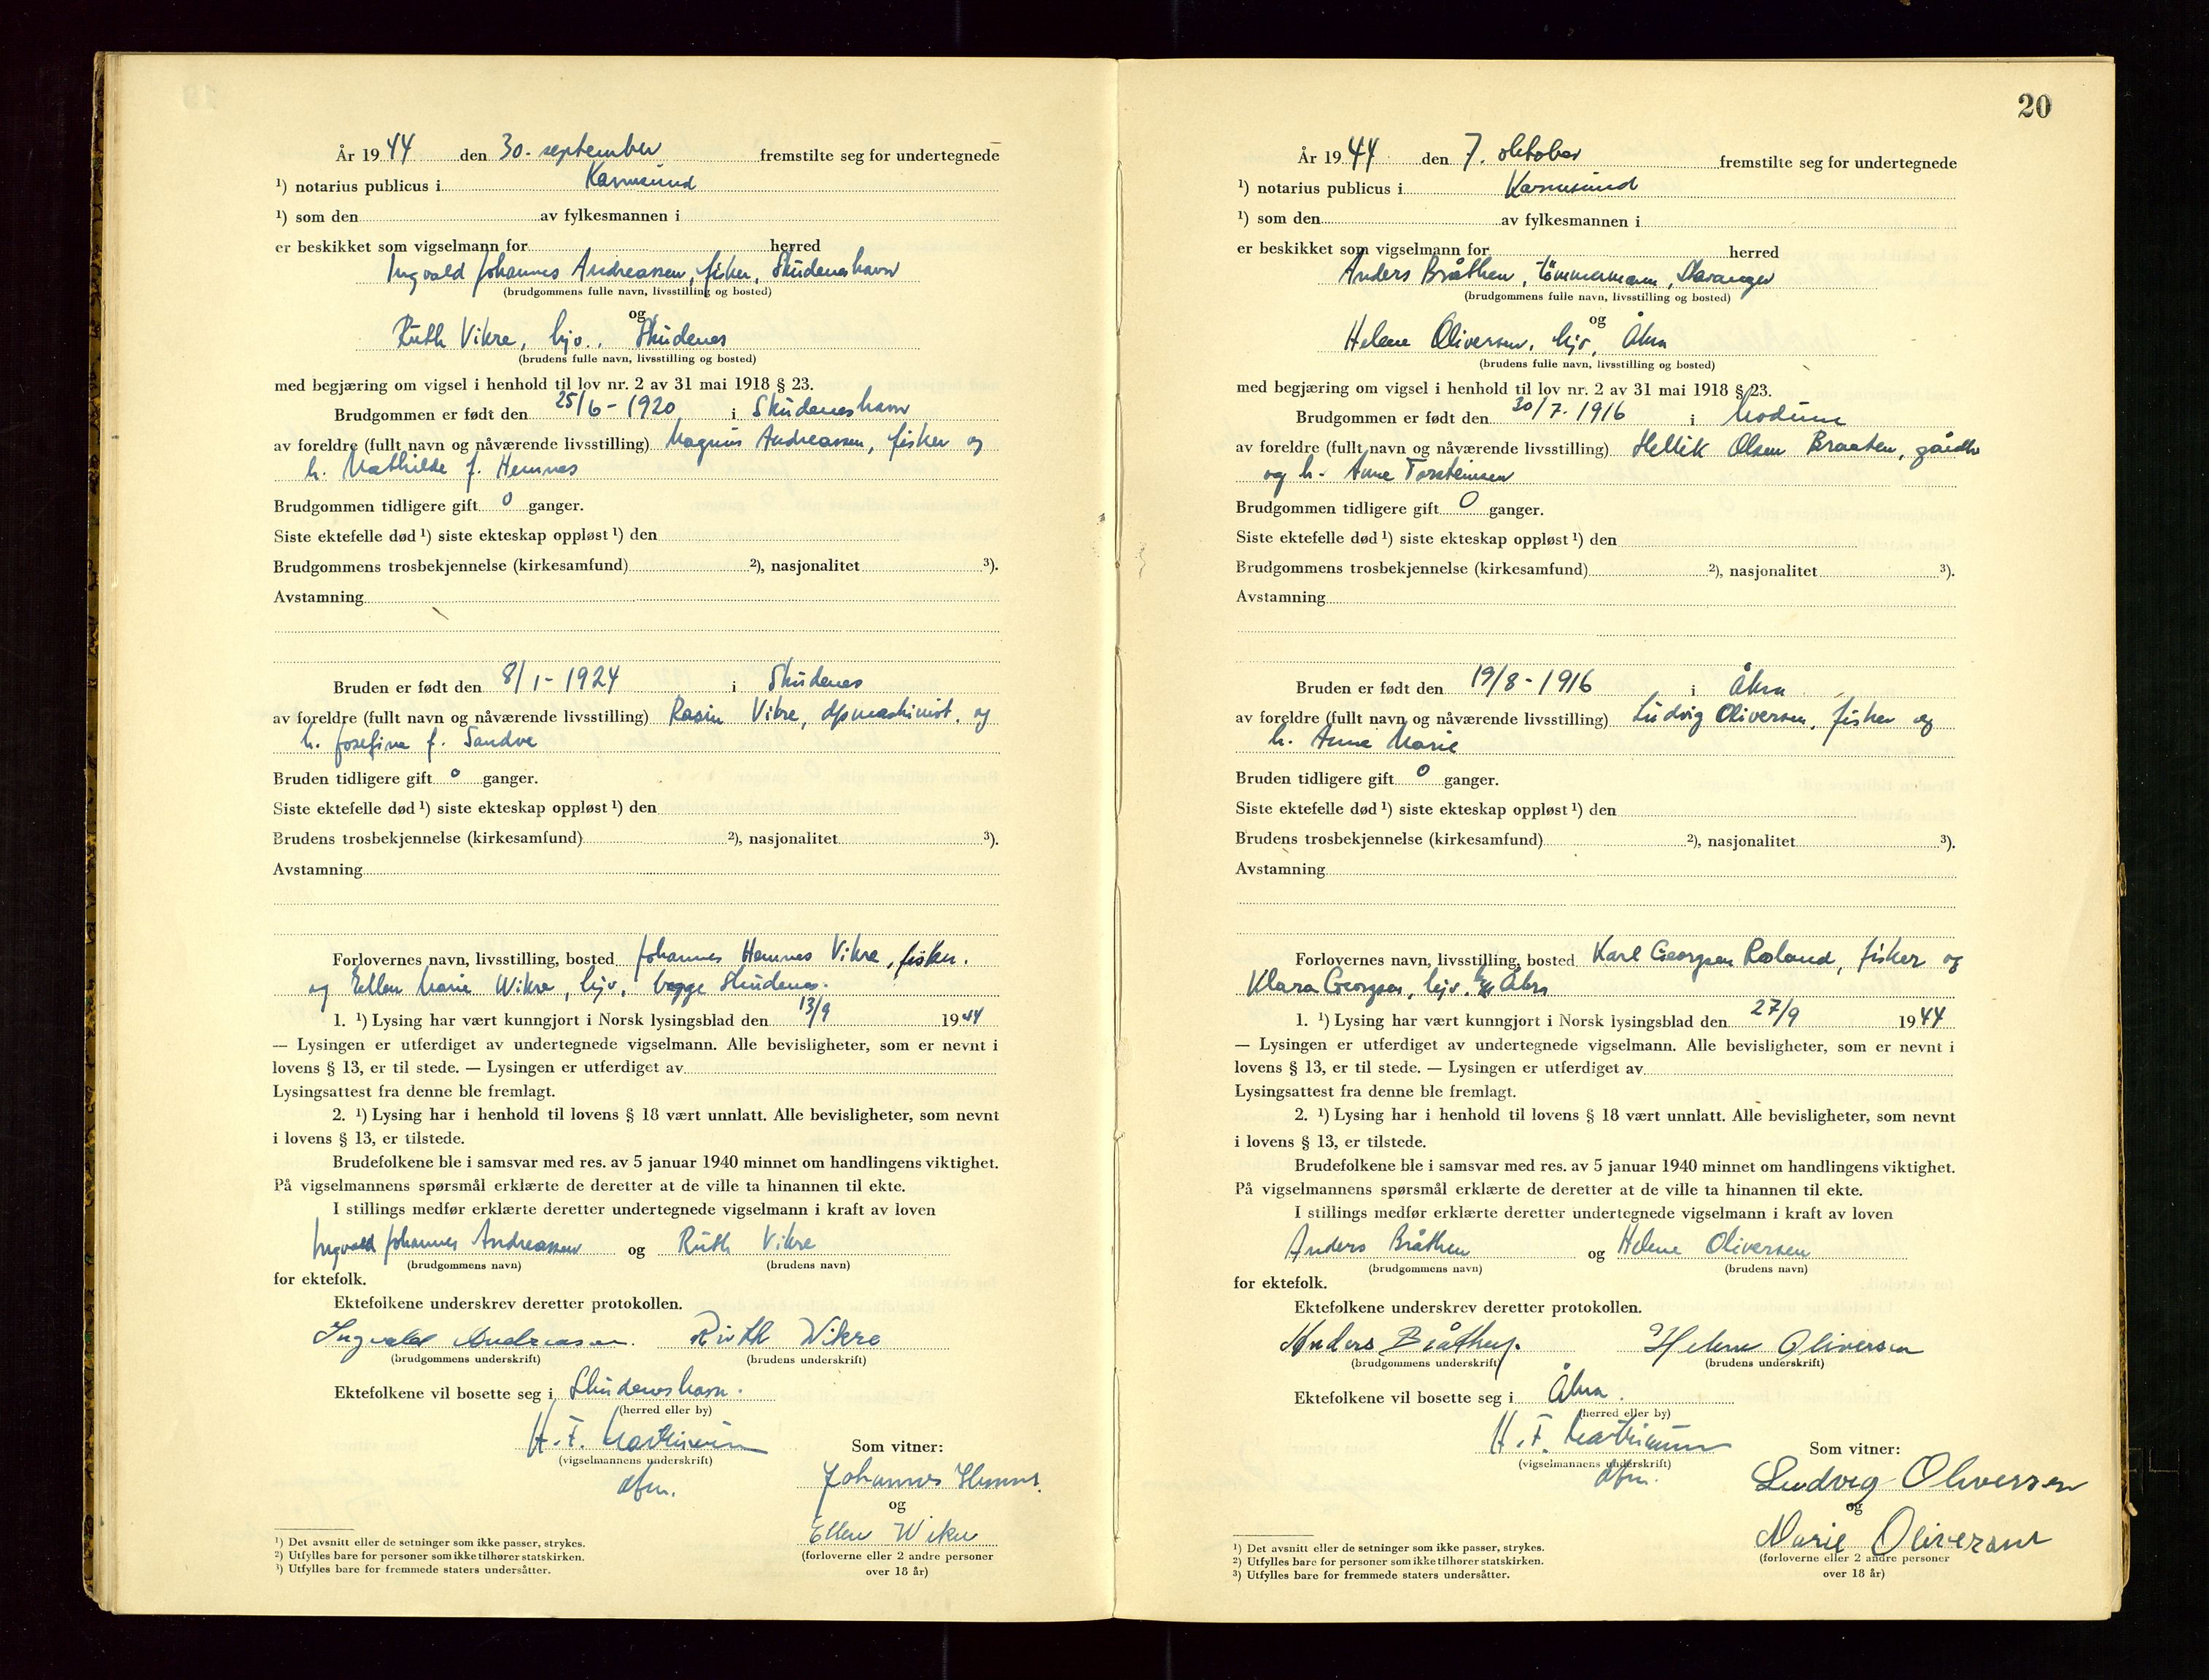 År 1944 den 30. september fremstilte seg for undertegnede
¹) notarius publicus i Karmsund
¹) som den av fylkesmannen i
er beskikket som vigselmann for herred
Ingvald Johannes Andreassen, fisker, Skudeneshavn
(brudgommens fulle navn, livsstilling og bosted)
og
Ruth Vikre, hjv., Skudenes
(brudens fulle navn, livsstilling og bosted)
med begjæring om vigsel i henhold til lov nr. 2 av 31 mai 1918 § 23.
Brudgommen er født den 25/6 - 1920 i Skudeneshavn
av foreldre (fullt navn og nåværende livsstilling) Magnus Andreassen, fisker og
h. Mathilde f. Hemnes
Brudgommen tidligere gift 0 ganger.
Siste ektefelle død ¹) siste ekteskap oppløst ¹) den
Brudgommens trosbekjennelse (kirkesamfund) ²), nasjonalitet ³).
Avstamning
Bruden er født den 8/1 - 1924 i Skudenes
av foreldre (fullt navn og nåværende livsstilling) Rasin Vikre, dpmaskinist, og
h. Josefine f. Sandve
Bruden tidligere gift 0 ganger.
Siste ektefelle død ¹) siste ekteskap oppløst ¹) den
Brudens trosbekjennelse (kirkesamfund) ²), nasjonalitet ³).
Avstamning
Forlovernes navn, livsstilling, bosted Johannes Hemnes Vikre, fisker.
og Ellen Marie Wikre, hjv, begge Skudenes.
1. ¹) Lysing har vært kunngjort i Norsk lysingsblad den 13/9 1944
— Lysingen er utferdiget av undertegnede vigselmann. Alle bevisligheter, som er nevnt i
lovens § 13, er til stede. — Lysingen er utferdiget av
Lysingsattest fra denne ble fremlagt.
2. ¹) Lysing har i henhold til lovens § 18 vært unnlatt. Alle bevisligheter, som nevnt
i lovens § 13, er tilstede.
Brudefolkene ble i samsvar med res. av 5 januar 1940 minnet om handlingens viktighet.
På vigselmannens spørsmål erklærte de deretter at de ville ta hinannen til ekte.
I stillings medfør erklærte deretter undertegnede vigselmann i kraft av loven
Ingvald Johannes Andreassen og Ruth Vikre
(brudgommens navn) (brudens navn)
for ektefolk.
Ektefolkene underskrev deretter protokollen.
Ingvald Andreassen. Ruth Wikre
(brudgommens underskrift) (brudens underskrift)
Ektefolkene vil bosette seg i Skudeneshavn.
(herred eller by)
H. F. Mathiesen
(vigselmannens underskrift)
dfm.
Som vitner:
Johannes Hemnes
og
Ellen Wikre
(forloverne eller 2 andre personer
over 18 år)
¹) Det avsnitt eller de setninger som ikke passer, strykes.
²) Utfylles bare for personer som ikke tilhører statskirken.
³) Utfylles bare for fremmede staters undersåtter.
20
År 1944 den 7. oktober fremstilte seg for undertegnede
¹) notarius publicus i Karmsund
¹) som den av fylkesmannen i
er beskikket som vigselmann for herred
Anders Bråthen, tömmermann, Stavanger
(brudgommens fulle navn, livsstilling og bosted)
og
Helene Oliversen, hjv, Åkra
(brudens fulle navn, livsstilling og bosted)
med begjæring om vigsel i henhold til lov nr. 2 av 31 mai 1918 § 23.
Brudgommen er født den 30/7. 1916 i Modum
av foreldre (fullt navn og nåværende livsstilling) Hellik Olsen Braaten, gårdbr
og h. Anne Torsteinsen
Brudgommen tidligere gift 0 ganger.
Siste ektefelle død ¹) siste ekteskap oppløst ¹) den
Brudgommens trosbekjennelse (kirkesamfund) ²), nasjonalitet ³).
Avstamning
Bruden er født den 19/8 - 1916 i Åkra
av foreldre (fullt navn og nåværende livsstilling) Ludvig Oliversen, fisker og
h. Anne Marie
Bruden tidligere gift 0 ganger.
Siste ektefelle død ¹) siste ekteskap oppløst ¹) den
Brudens trosbekjennelse (kirkesamfund) ²), nasjonalitet ³).
Avstamning
Forlovernes navn, livsstilling, bosted Karl Georgsen Roland, fisker og
Klara Georgsen, hjv. Åkra
1. ¹) Lysing har vært kunngjort i Norsk lysingsblad den 27/9 1944
— Lysingen er utferdiget av undertegnede vigselmann. Alle bevisligheter, som er nevnt i
lovens § 13, er til stede. — Lysingen er utferdiget av
Lysingsattest fra denne ble fremlagt.
2. ¹) Lysing har i henhold til lovens § 18 vært unnlatt. Alle bevisligheter, som nevnt
i lovens § 13, er tilstede.
Brudefolkene ble i samsvar med res. av 5 januar 1940 minnet om handlingens viktighet.
På vigselmannens spørsmål erklærte de deretter at de ville ta hinannen til ekte.
I stillings medfør erklærte deretter undertegnede vigselmann i kraft av loven
Anders Bråthen og Helene Oliversen
(brudgommens navn) (brudens navn)
for ektefolk.
Ektefolkene underskrev deretter protokollen.
Anders Bråthen. Helene Oliversen
(brudgommens underskrift) (brudens underskrift)
Ektefolkene vil bosette seg i Åkra.
(herred eller by)
H. F. Mathiesen
(vigselmannens underskrift)
dfm.
Som vitner:
Ludvig Oliversen
og
Marie Oliversen
(forloverne eller 2 andre personer
over 18 år)
¹) Det avsnitt eller de setninger som ikke passer, strykes.
²) Utfylles bare for personer som ikke tilhører statskirken.
³) Utfylles bare for fremmede staters undersåtter.